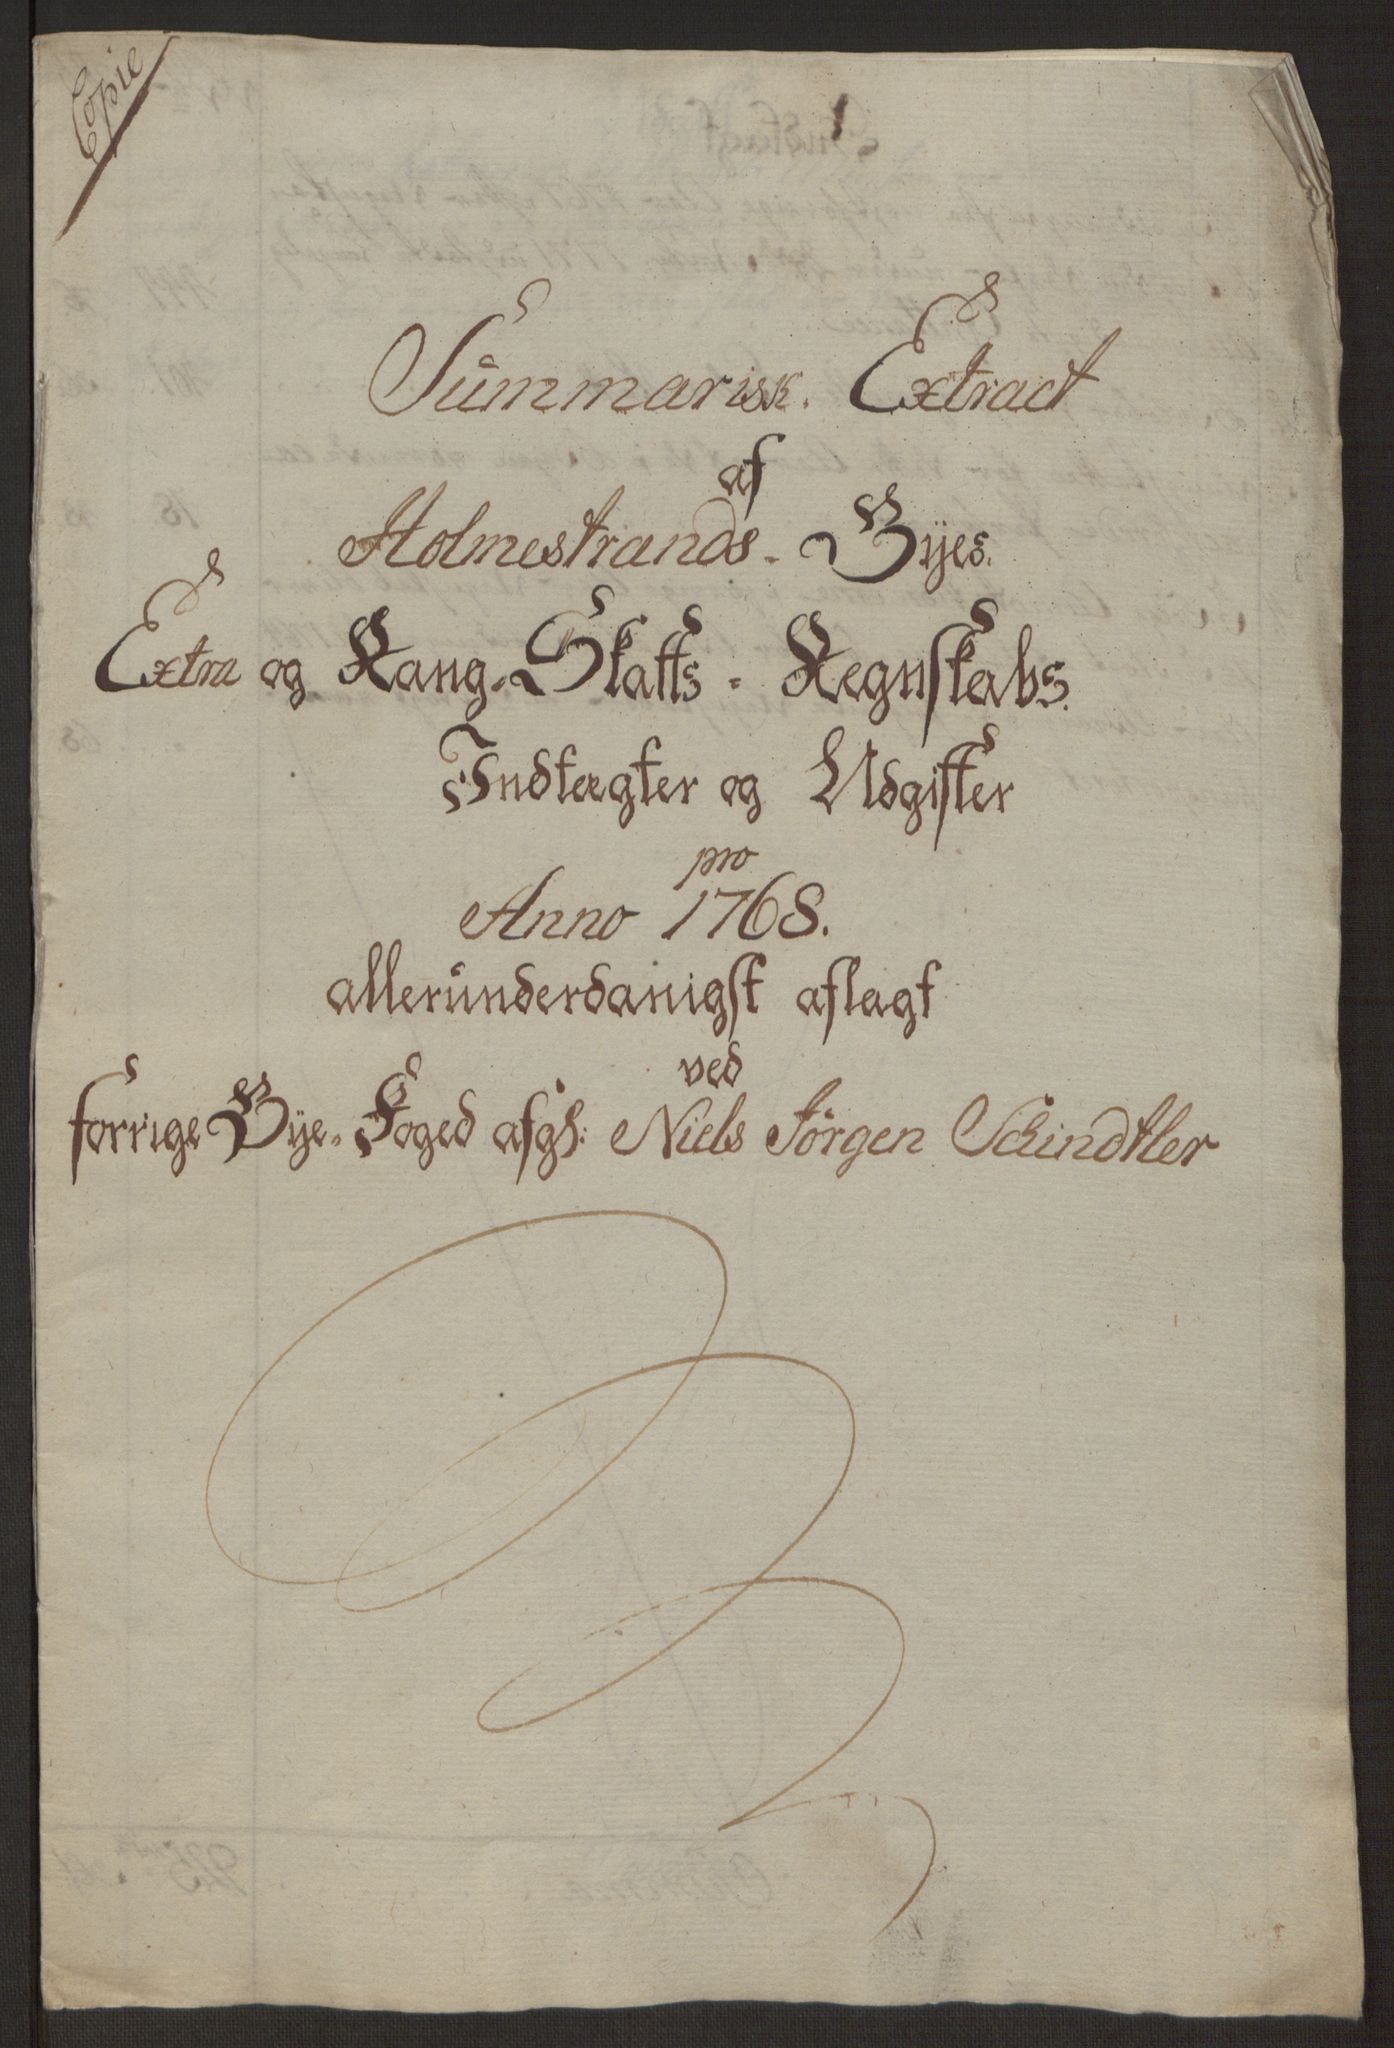 Copie
Summarisk. Extract
af
Holmestrands. Byes.
Extra og Rang-Skatts-Regnskabs.
Indtægter og Udgifter
pro
Anno 1768.
allerunderdanigst aflagt
ved
forrige Bye-Foged afgl: Niels Jörgen Schindtler